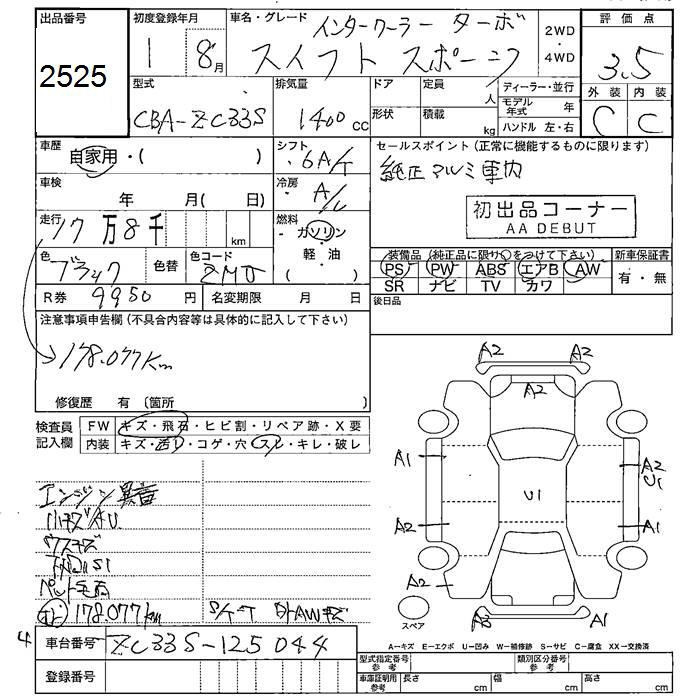 出品番号 初度登録年月 車名・グレード インタークーラー ターボ 2WD・4WD 評価点
2525 1 8月 スイフト スポーツ 3.5
型式 排気量 ドア 定員 人 ディーラー・並行 外装 内装
CBA-ZC33S 1400 cc 形状 積載 kg モデル年式 年 C C
ハンドル 左・右
車歴 自家用・( ) シフト ・6A/T セールスポイント(正常に機能するものに限ります)
純正アルミ 車内
車検 年 月( 日) 冷房 A/C
初出品コーナー
AA DEBUT
走行 17万8千 km 燃料 ・ガソリン・軽・油 ( )
色 ブラック 色替 色コード ZMJ
装備品(純正品に限り○をつけて下さい) 新車保証書
PS PW ABS エアB AW 有・無
SR ナビ TV カワ
R券 9950 円 名変期限 月 日 後日品
注意事項申告欄(不具合内容等は具体的に記入して下さい)
178.077km
修復歴 有 (箇所
検査員記入欄 FW キズ・飛石・ヒビ割・リペア跡・X要
内装 キズ・汚レ・コゲ・穴・スレ・キレ・破レ
A2 A2
A2
A1 A2 U1
U1
A2 A1
A2
A3 A1
スペア
エンジン異音
ハナズAU
ウスキズ
178.077km
A-キズ E-エクボ U-凹み W-補修跡 S-サビ C-腐食 XX-交換済
4 車台番号 ZC33S-125044
登録番号
型式指定番号 参考 類別区分番号 参考
車庫証明用 参考 長さ cm 幅 cm 高さ cm